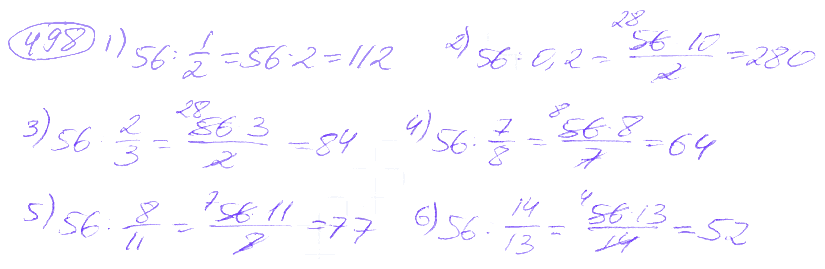 498 1) 56 : 1/2 = 56 · 2 = 112 2) 56 : 0,2 = 56 · 10 / 2 = 280 (28)
3) 56 : 2/3 = 56 · 3 / 2 = 84 (28) 4) 56 : 7/8 = 56 · 8 / 7 = 64 (8)
5) 56 : 8/11 = 56 · 11 / 8 = 77 (7) 6) 56 : 14/13 = 56 · 13 / 14 = 52 (4)